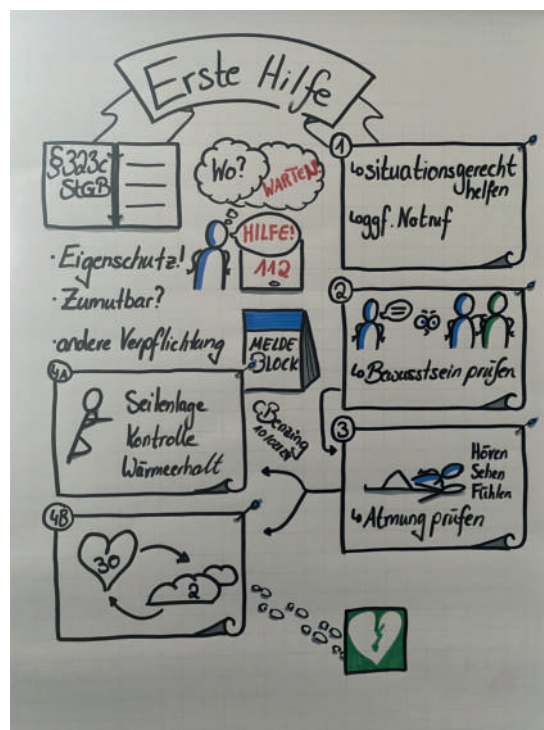 Erste Hilfe
§323c
StGB
Wo?
WARTEN!
HILFE!
112
· Eigenschutz!
· Zumutbar?
· andere Verpflichtung
MELDE
BLOCK
1
↳situationsgerecht
helfen
↳ggf. Notruf
2
↳Bewusstsein prüfen
3
Hören
Sehen
Fühlen
↳Atmung prüfen
4A
Seitenlage
Kontrolle
Wärmeerhalt
CBenzing
4B
30
2